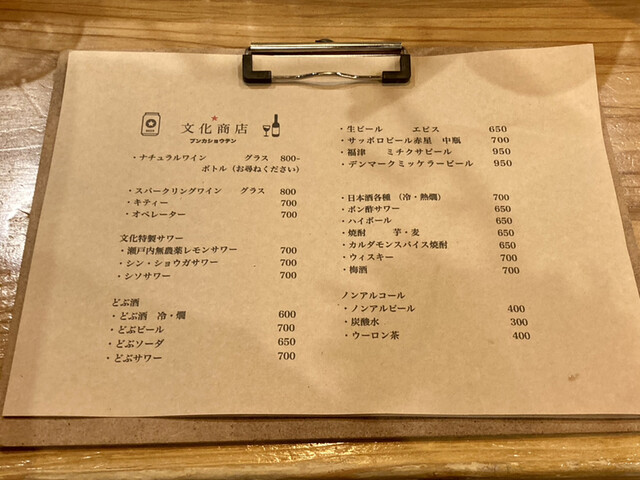 文化商店
ブンカショウテン
・ナチュラルワイン グラス 800-
ボトル（お尋ねください）
・スパークリングワイン グラス 800
・キティー 700
・オペレーター 700
文化特製サワー
・瀬戸内無農薬レモンサワー 700
・シン・ショウガサワー 700
・シソサワー 700
どぶ酒
・どぶ酒 冷・燗 600
・どぶビール 700
・どぶソーダ 650
・どぶサワー 700
・生ビール エビス 650
・サッポロビール赤星 中瓶 700
・福津 ミチクサビール 950
・デンマークミッケラービール 950
・日本酒各種（冷・熱燗） 700
・ポン酢サワー 650
・ハイボール 650
・焼酎 芋・麦 650
・カルダモンスパイス焼酎 650
・ウィスキー 700
・梅酒 700
ノンアルコール
・ノンアルビール 400
・炭酸水 300
・ウーロン茶 400